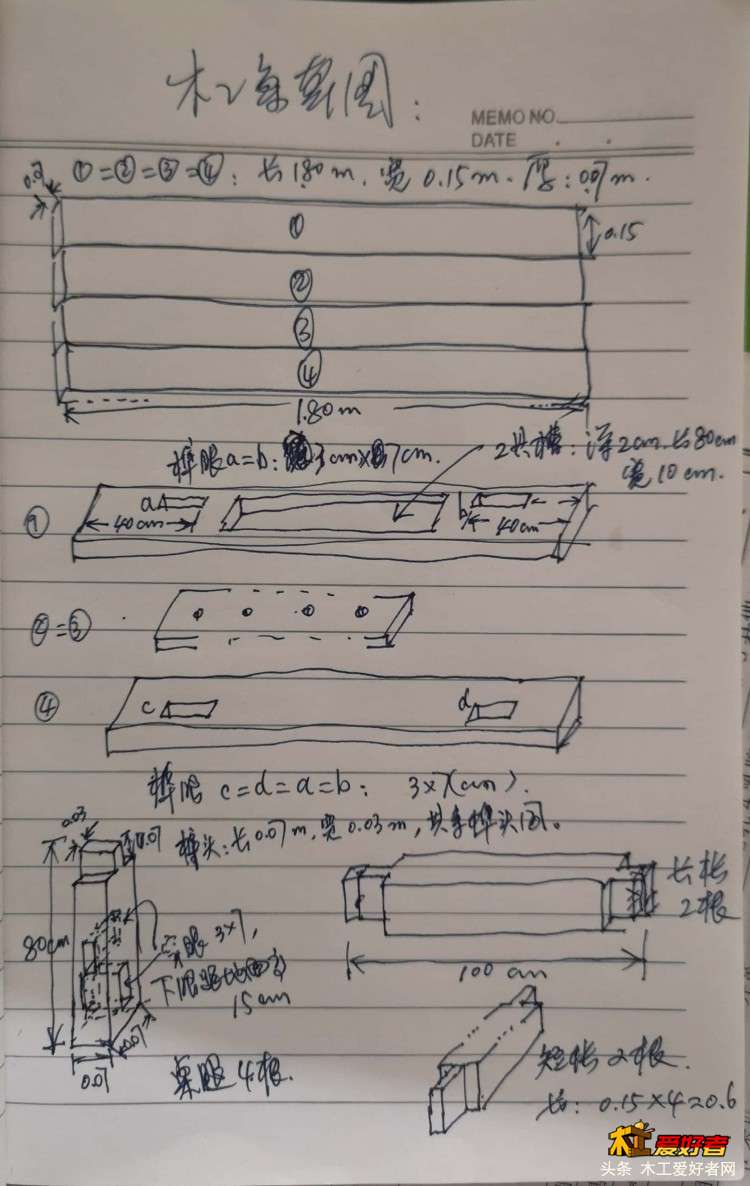 木工算草图:
MEMO NO.
DATE
0.07
①=②=③=④: 长1.80m. 宽0.15m. 厚:0.07m.
①
0.15
②
③
④
1.80m
榫眼a=b: 3cm×7cm.
工具槽:深2cm.长80cm
宽10cm.
①
a
40cm
b
40cm
②=③
④
c
d
榫眼 c=d=a=b: 3×7(cm).
0.03
0.07
榫头:长0.07m,宽0.03m,其余榫头同。
80cm
眼3×7,
下限距地面
15cm
0.07
0.07
桌腿4根.
长枨
2根
100cm
短枨2根.
长: 0.15×4=0.6
木工爱好者
头条 木工爱好者网